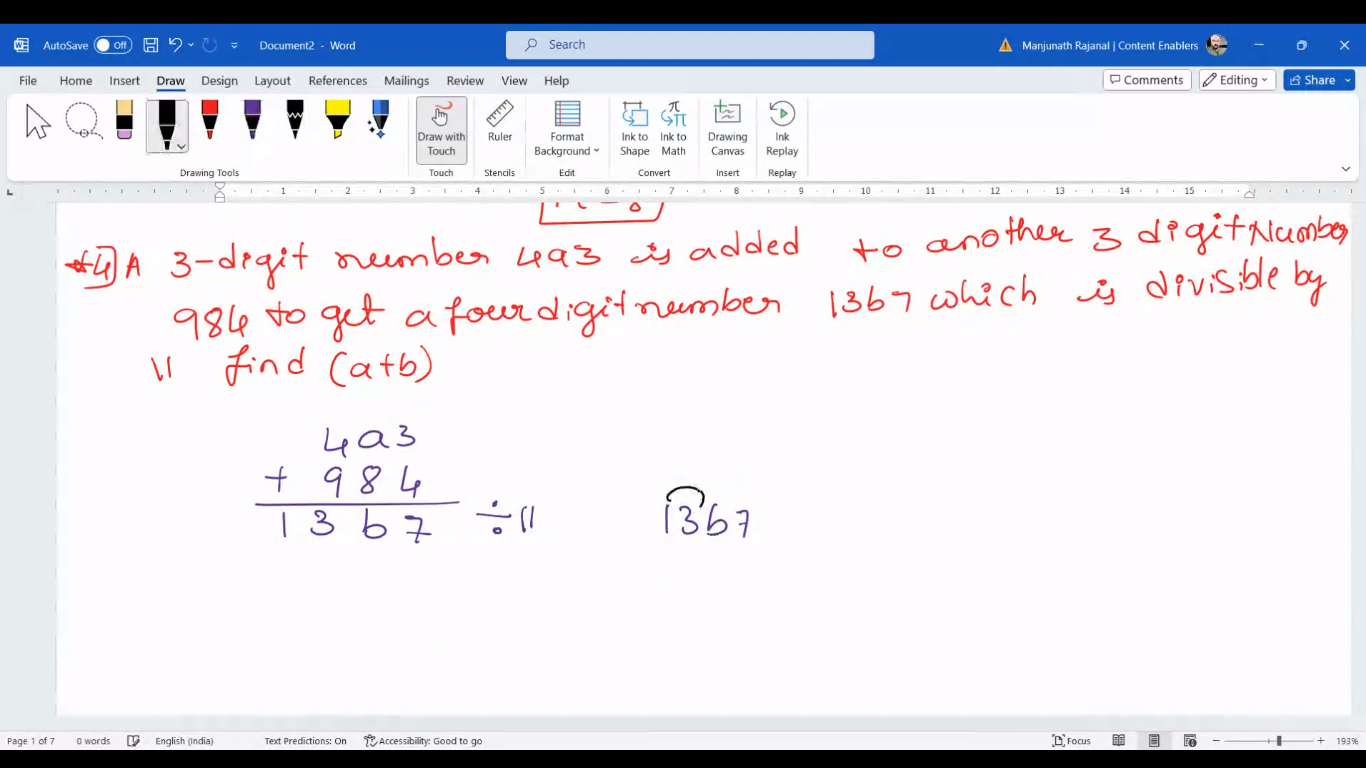 AutoSave Off Document2 - Word Search Manjunath Rajanal | Content Enablers
File Home Insert Draw Design Layout References Mailings Review View Help Comments Editing Share
Draw with Touch Ruler Format Background Ink to Shape Ink to Math Drawing Canvas Ink Replay
Drawing Tools Touch Stencils Edit Convert Insert Replay
1 2 3 4 5 6 7 8 9 10 11 12 13 14 15
4] A 3-digit number 4a3 is added to another 3 digit Number
984 to get a four digit number 13b7 which is divisible by
11 find (a+b)
4a3
+ 984
13b7 ÷ 11 13b7
Page 1 of 7 0 words English (India) Text Predictions: On Accessibility: Good to go Focus 193%